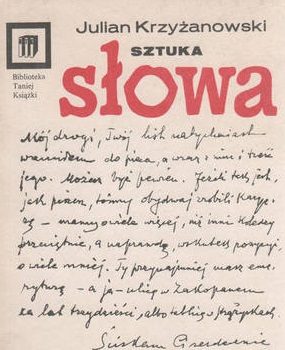 Julian Krzyżanowski
SZTUKA
słowa
Biblioteka
Taniej
Książki
Mój drogi, Twój list natychmiast
do pieca, a wraz z nim i treść
jego. Możesz być pewien. Jeżeli tak jest,
jak piszesz, to my obydwaj zrobili karje-
rę – mamy o wiele więcej, niż inni koledzy
przeciętnie, a naprawdę, wskutek pozycji,
o wiele mniej. Ty przynajmniej masz eme-
ryturę – a ja – ulicę w Zakopanem
za lat trzydzieści, albo tablicę w
Ściskam serdecznie